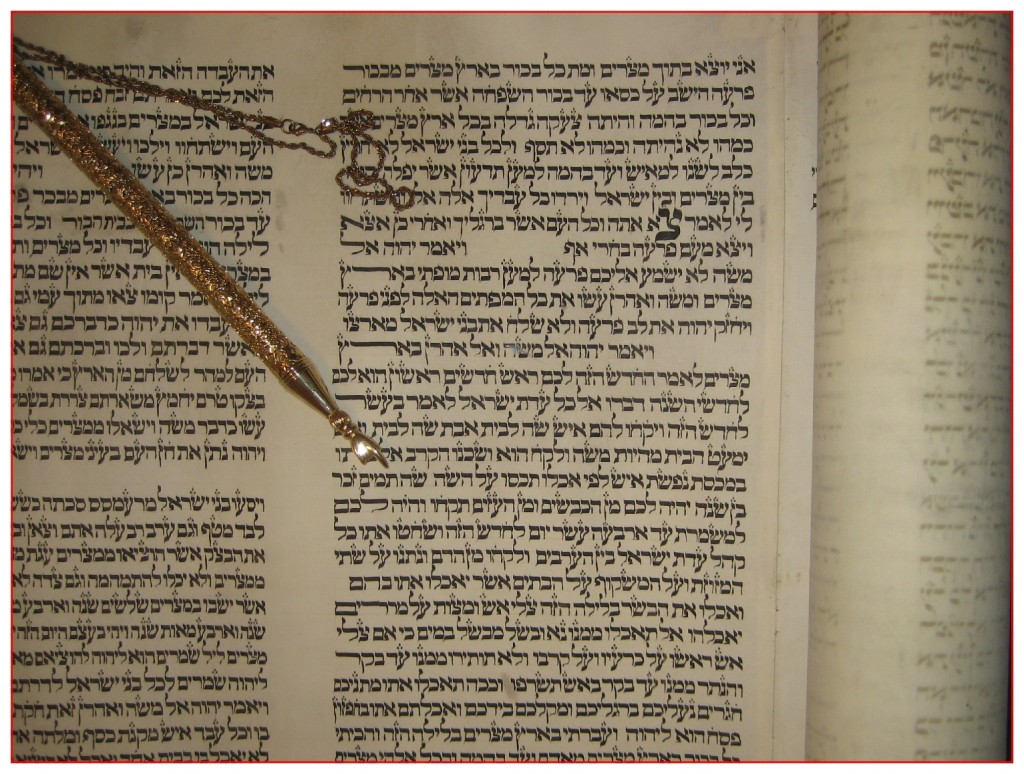 אני יוצא בתוך מצרים ומת כל בכור בארץ מצרים מבכור
פרעה הישב על כסאו עד בכור השפחה אשר אחר הרחים
וכל בכור בהמה והיתה צעקה גדלה בכל ארץ מצרים
כמהו לא נהיתה וכמהו לא תסף ולכל בני ישראל לא
כלב לשנו למאיש ועד בהמה למען תדעון אשר
בין מצרים ובין ישראל וירדו כל עבדיך אלה
לי לאמר צא אתה וכל העם אשר ברגליך ואחרי כן אצא
ויצא מעם פרעה בחרי אף ויאמר יהוה אל
משה לא ישמע אליכם פרעה למען רבות מופתי בארץ
מצרים ומשה ואהרן עשו את כל המפתים האלה לפני פרעה
ויחזק יהוה את לב פרעה ולא שלח את בני ישראל מארצו
ויאמר יהוה אל משה ואל אהרן בארץ
מצרים לאמר החדש הזה לכם ראש חדשים ראשון הוא לכם
לחדשי השנה דברו אל כל עדת ישראל לאמר בעשר
לחדש הזה ויקחו להם איש שה לבית אבת שה לבית
ימעט הבית מהיות משה ולקח הוא ושכנו הקרב אל ביתו
במכסת נפשת איש לפי אכלו תכסו על השה שה תמים זכר
בן שנה יהיה לכם מן הכבשים ומן העזים תקחו והיה לכם
למשמרת עד ארבעה עשר יום לחדש הזה ושחטו אתו כל
קהל עדת ישראל בין הערבים ולקחו מן הדם ונתנו על שתי
המזוזת ועל המשקוף על הבתים אשר יאכלו אתו בהם
ואכלו את הבשר בלילה הזה צלי אש ומצות על מררים
יאכלהו אל תאכלו ממנו נא ובשל מבשל במים כי אם צלי
אש ראשו על כרעיו ועל קרבו ולא תותירו ממנו עד בקר
והנתר ממנו עד בקר באש תשרפו וככה תאכלו אתו מתניכם
חגרים נעליכם ברגליכם ומקלכם בידכם ואכלתם אתו בחפזון
פסח הוא ליהוה ועברתי בארץ מצרים בלילה הזה והכיתי
כל בכור בארץ מצרים מאדם ועד בהמה ובכל אלהי מצרים
את העבדה הזאת והיה
הזאת לכם ואמרתם זבח פסח
במצרים בנגפו
העם וישתחוו וילכו
משה ואהרן כן עשו ויהי
הכה כל בכור מצרים מבכר
עד בכור בבית הבור וכל
לילה עבדיו וכל מצרים
בית אשר אין שם
קומו צאו מתוך עמי גם
עבדו את יהוה כדברכם גם
כאשר דברתם ולכו וברכתם גם
העם למהר לשלחם מן הארץ כי אמרו
בצקו טרם יחמץ משארתם צררת
עשו כדבר משה וישאלו ממצרים
ויהוה נתן את חן העם בעיני מצרים
ויסעו בני ישראל מרעמסס סכתה
לבד מטף וגם ערב רב עלה אתם וצאן
את הבצק אשר הוציאו ממצרים עגת
ממצרים ולא יכלו להתמהמה וגם צדה
אשר ישבו במצרים שלשים שנה וארבע
שנה וארבע מאות שנה ויהי בעצם היום הזה
מצרים ליל שמרים הוא ליהוה להוציאם
ליהוה שמרים לכל בני ישראל לדרתם
ויאמר יהוה אל משה ואהרן זאת חקת
בו וכל עבד איש מקנת כסף ומלתה
לא יאכל בו בבית אחד יאכל לא